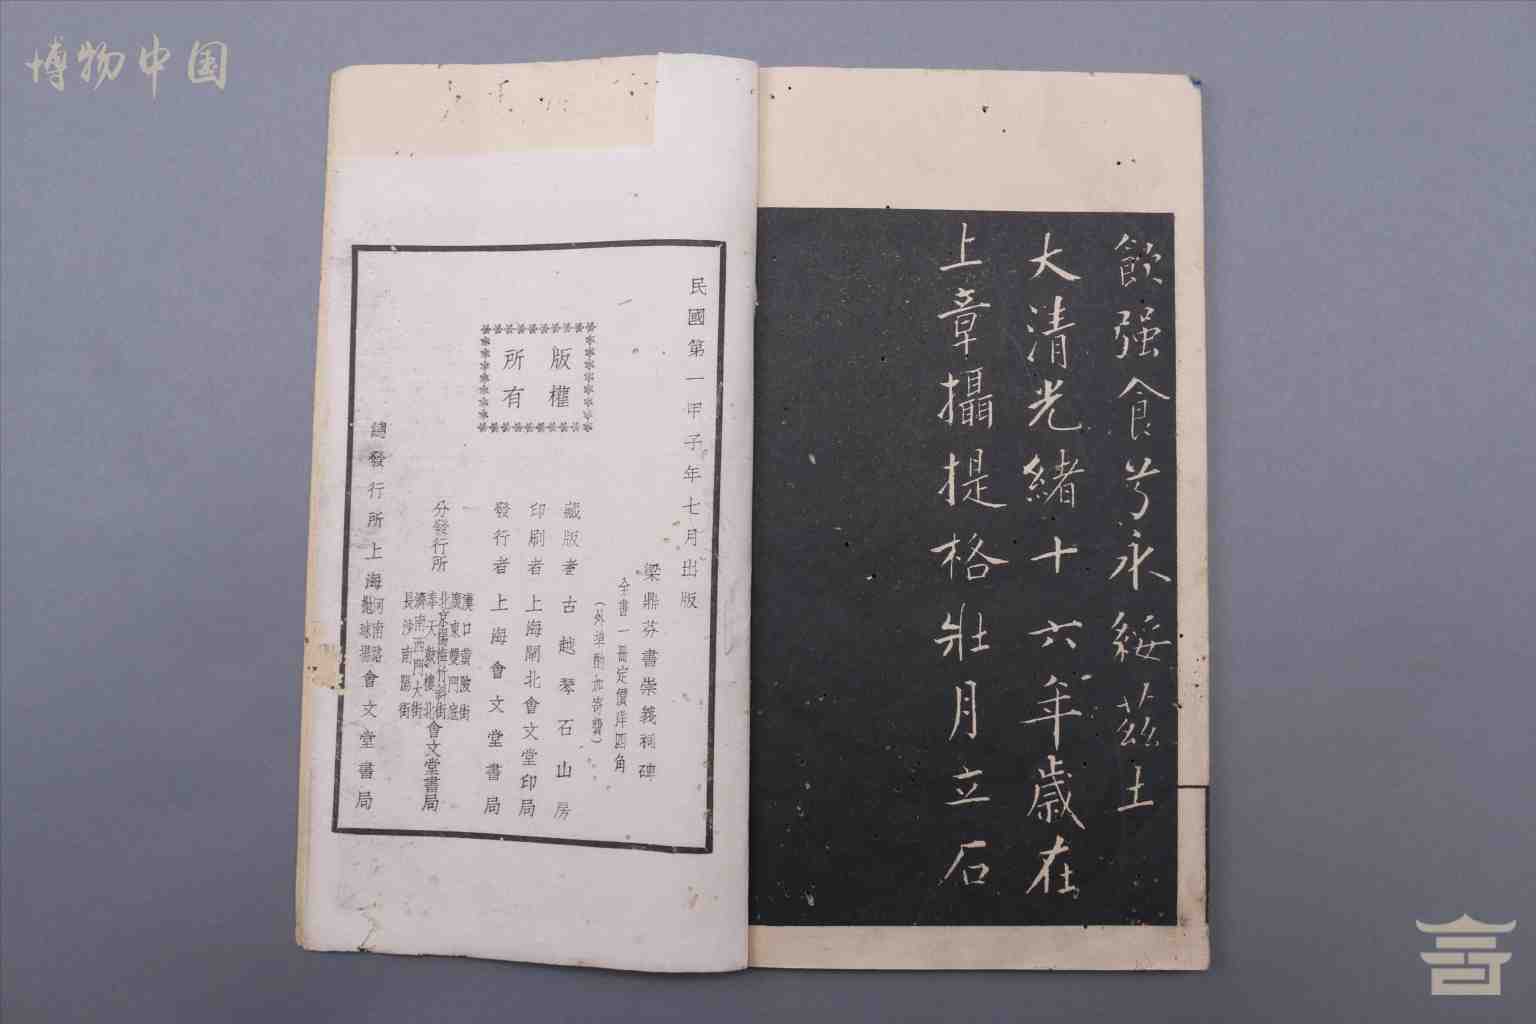 博物中国
飲强食兮永綏茲土
大清光緒十六年歲在
上章攝提格壯月立石
民國第一甲子年七月出版
梁鼎芬書崇義祠碑
全書一冊定價洋四角
(外埠酌加寄費)
版權
所有
藏版者 古越琴石山房
印刷者 上海閘北會文堂印局
發行者 上海會文堂書局
分發行所
漢口黃陂街
廣東雙門底
北京楊梅竹斜街
奉天鼓樓北
濟南西門大街
長沙南陽街
會文堂書局
總發行所 上海
河南路
拋球場
會文堂書局